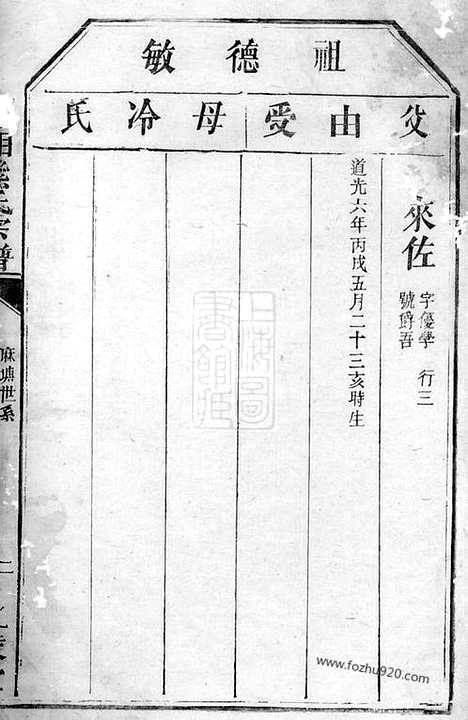 祖德敏
父由受母冷氏
來佐
字優學 行三
號爵吾
道光六年丙戌五月二十三亥時生
氏宗譜
麻塘世系
二
上海圖書館藏
www.fozhu920.com